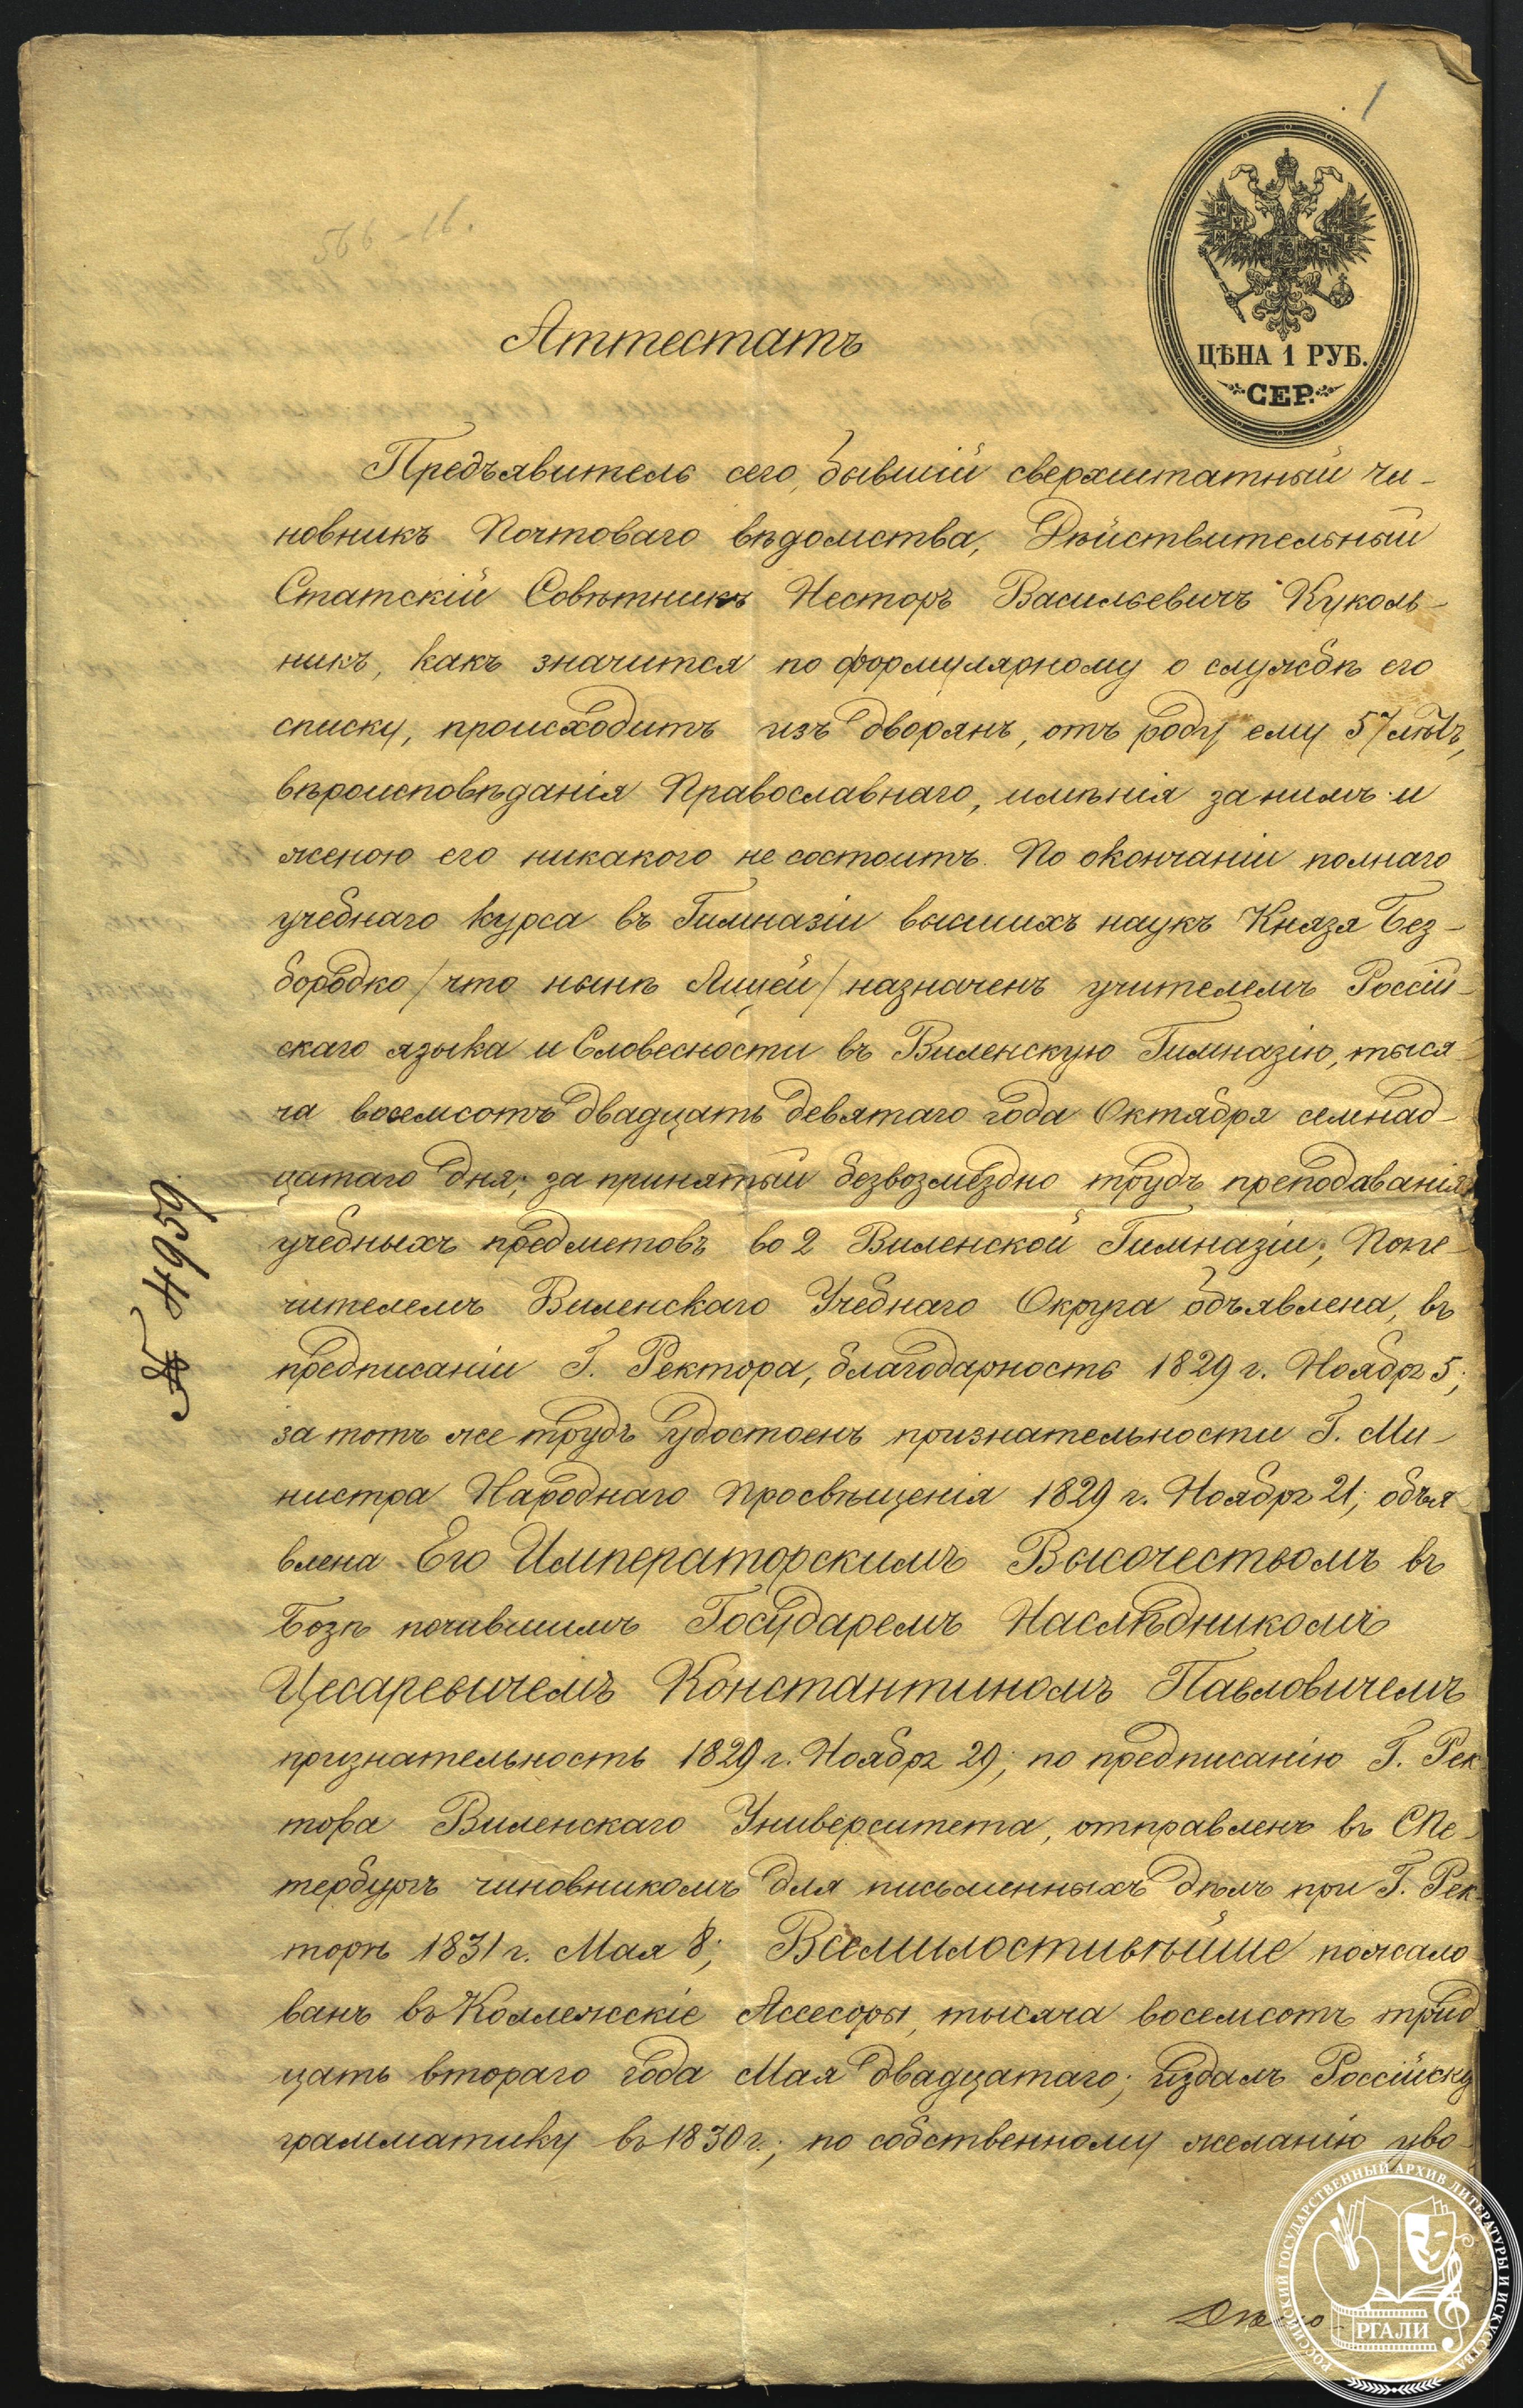 1
566-16.
ЦѢНА 1 РУБ.
СЕР.
Аттестатъ
Предъявитель сего, бывшій сверхштатный чи-
новникъ Почтоваго вѣдомства, Дѣйствительный
Статскій Совѣтникъ Несторъ Васильевичъ Куколь-
никъ, какъ значится по формулярному о службѣ его
списку, происходитъ изъ дворянъ, отъ роду ему 57 лѣтъ,
вѣроисповѣданія Православнаго, имѣнія за нимъ и
женою его никакого не состоитъ. По окончаніи полнаго
учебнаго курса въ Гимназіи высшихъ наукъ Князя Без-
бородко /что нынѣ Лицей/ назначенъ учителемъ Россій-
скаго языка и Словесности въ Виленскую Гимназію, тыся-
ча восемсотъ двадцать девятаго года Октября семнад-
цатаго дня; за принятый безвозмездно трудъ преподаванія
учебныхъ предметовъ во 2 Виленской Гимназіи, Попе-
чителемъ Виленскаго Учебнаго Округа объявлена, въ
предписаніи Г. Ректора, благодарность 1829 г. Ноябр 5;
за тотъ же трудъ удостоенъ признательности Г. Ми-
нистра Народнаго Просвѣщенія 1829 г. Ноябр 21; объя-
влена Его Императорскимъ Высочествомъ въ
Бозѣ почившимъ Государемъ Наслѣдникомъ
Цесаревичемъ Константиномъ Павловичемъ
признательность 1829 г. Ноябр 29; по предписанію Г. Рек-
тора Виленскаго Университета, отправленъ въ СПе-
тербургъ чиновникомъ для письменныхъ дѣлъ при Г. Рек-
торѣ 1831 г. Мая 8; Всемилостивѣйше пожало-
ванъ въ Коллежскіе Ассесоры, тысяча восемсотъ трид-
цать втораго года Мая двадцатаго; издалъ Россійску
грамматику въ 1830 г.; по собственному желанію уво-
№ 4959.
РОССИЙСКИЙ ГОСУДАРСТВЕННЫЙ АРХИВ ЛИТЕРАТУРЫ И ИСКУССТВА
РГАЛИ